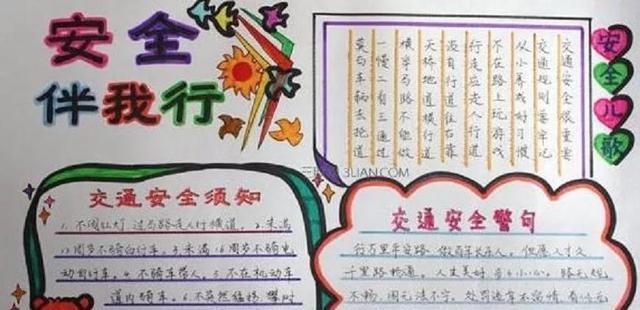 安全
伴我行
安全儿歌
交通安全很重要
交通规则要牢记
从小养成好习惯
不在路上玩游戏
行走应走人行道
没有行道往右靠
天桥地道横行道
横穿马路不能做
一慢二看三通过
莫与车辆去抢道
3LIAN.COM
交通安全须知
1.不闯红灯,过马路走人行横道。2.未满
12周岁不骑自行车。3.未满16周岁不骑电
动自行车。4.不骑车带人。5.不在机动车
道内骑车。6.不突然猛拐,攀附
交通安全警句
行万里平安路,做百年长乐人。但愿人长久
千里路畅通。人生美好,步步小心。路无规
不畅,国无法不宁。处罚违章不留情,看似无